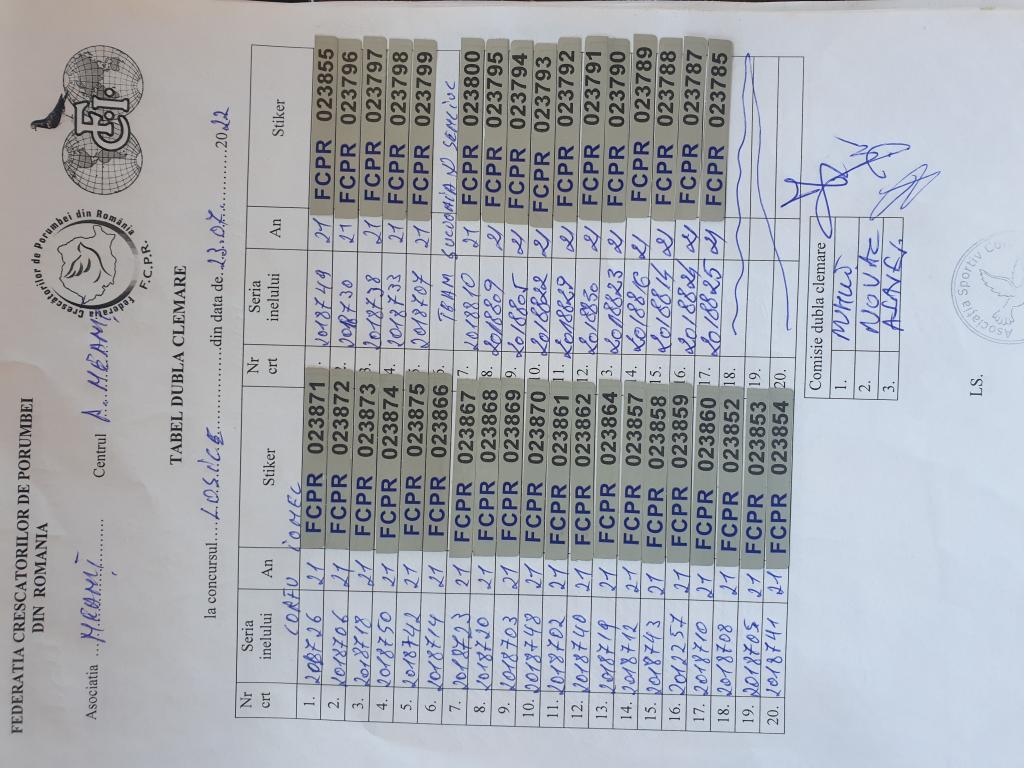 FEDERATIA CRESCATORILOR DE PORUMBEI
DIN ROMANIA
Federația Crescătorilor de Porumbei din România
F.C.P.R.
F.C.I.
Asociatia ... NEAMȚ ........... Centrul
TABEL DUBLA CLEMARE
la concursul....LOSICE..................din data de.23.07............2022
Nr crt Seria inelului An Stiker Nr crt Seria inelului An Stiker
CORFU COMEC
1. 2018726 21 FCPR 023871 . 2018749 21 FCPR 023855
2. 2018706 21 FCPR 023872 . 2018730 21 FCPR 023796
3. 2018718 21 FCPR 023873 3. 2018738 21 FCPR 023797
4. 2018750 21 FCPR 023874 4. 2018733 21 FCPR 023798
5. 2018742 21 FCPR 023875 5. 2018707 21 FCPR 023799
6. 2018714 21 FCPR 023866 6. TEAM
7. 2018723 21 FCPR 023867 7. 2018810 21 FCPR 023800
8. 2018720 21 FCPR 023868 8. 2018809 21 FCPR 023795
9. 2018703 21 FCPR 023869 9. 2018805 21 FCPR 023794
10. 2018748 21 FCPR 023870 10. 2018822 21 FCPR 023793
11. 2018702 21 FCPR 023861 11. 2018829 21 FCPR 023792
12. 2018740 21 FCPR 023862 12. 2018830 21 FCPR 023791
13. 2018719 21 FCPR 023864 3. 2018823 21 FCPR 023790
14. 2018712 21 FCPR 023857 14. 2018816 21 FCPR 023789
15. 2018743 21 FCPR 023858 15. 2018814 21 FCPR 023788
16. 2012257 21 FCPR 023859 16. 2018824 21 FCPR 023787
17. 2018710 21 FCPR 023860 17. 2018825 21 FCPR 023785
18. 2018708 21 FCPR 023852 18.
19. 2018705 21 FCPR 023853 19.
20. 2018741 21 FCPR 023854 20.
Comisie dubla clemare
1. MIHIU
2. NOVAC
3.
LS.
Asociația Sportivă